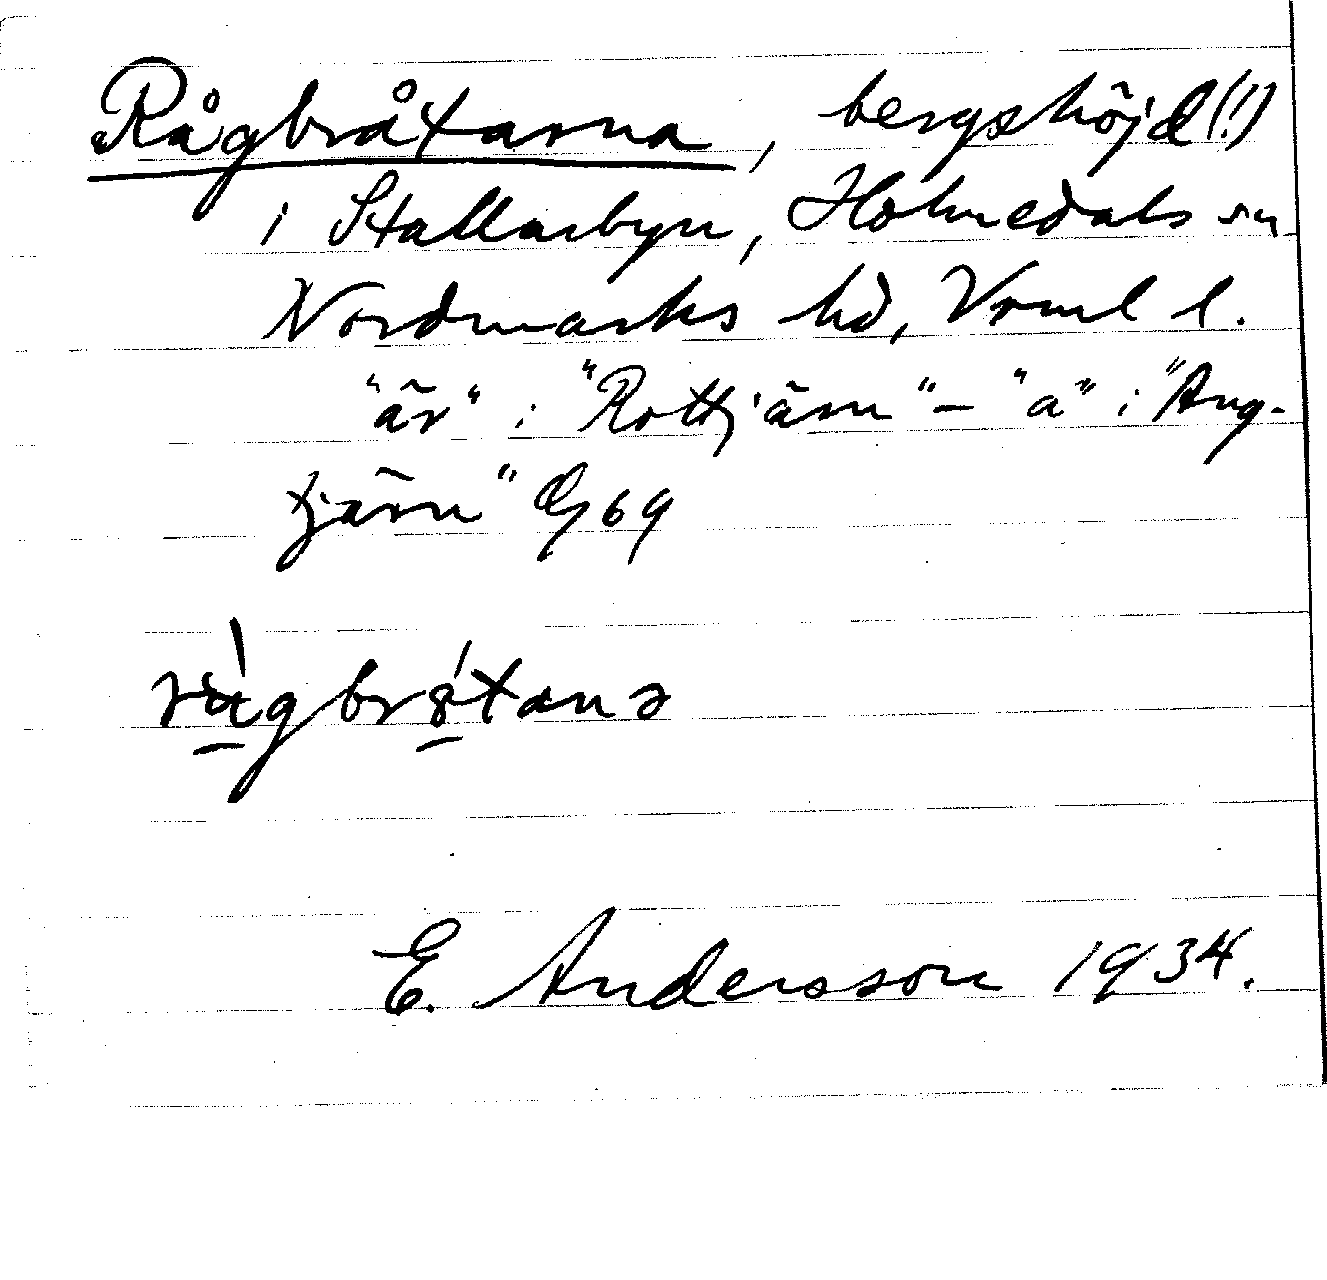 Rågbråtarna, bergshöjd(!)
i Stallarbyn, Holmedals sn
Nordmarks hd, Vrml l.
"är" i "Rottjärn" – "a" i "Ang-
tjärn" G69
E. Andersson 1934.